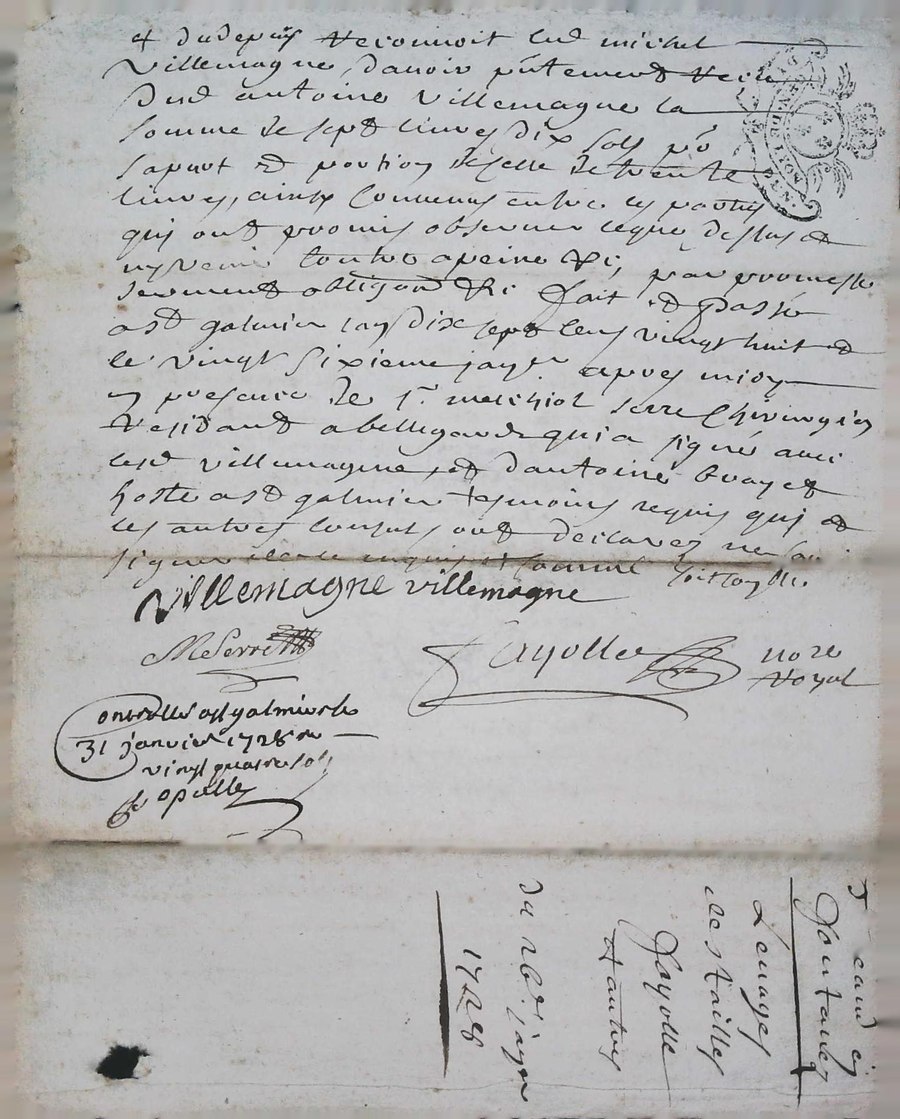 & dudepuis Reconnoit led michel
Villemagne, davoir pntement Receu
dud antoine villemagne la
somme de sept livres dix sols po
sa part et portion de celle de trente
livres, ainsy Convenus entre les parties
qui ont promis observer ce que dessus et
ny venir Contre a peine &c, par promesse
serment obligaon &c fait et passé
a st galmier lan dix sept cens vingt huit et
le vingt sixieme janer apres midy
en presence de sr melchiol serre Chirurgien
Residant a bellegarde qui a signé avec
lesd villemagne, et dantoine
hoste a st galmier tesmoins requis qui et
les autres ont declarez ne scavoir
signer de ce enquis et sommé
villemagne villemagne
MSerre
fayolle nore
Royal
Controllé a st galmier le
31 janvier 1728 Re
vingt quatre sols
du 26e janer
1728
fayolle
& autres
de s tailles
fontanes